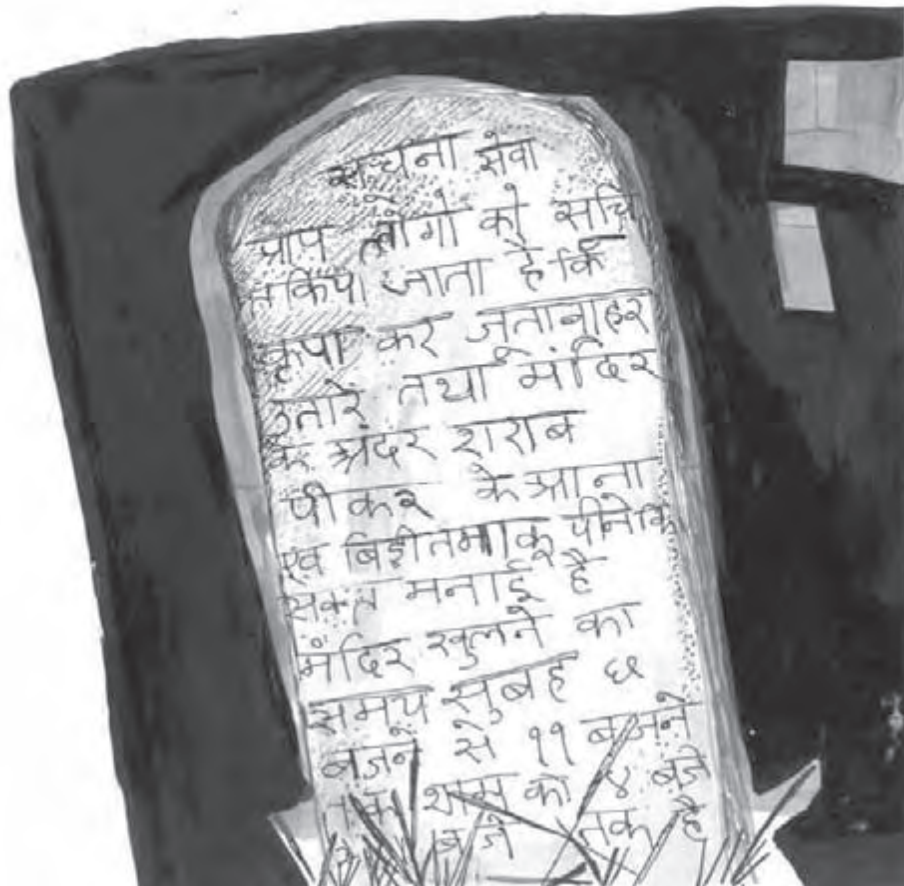 सूचना सेवा
आप लोगो को सुचि
त किया जाता है कि
कृपा कर जूता बाहर
उतारें तथा मंदिर
के अंदर शराब
पीकर के आना
एवं बिड़ी तमाकू पीने कि
सक्त मनाई है
मंदिर खुलने का
समय सुबह ६
बजने से ११ बजने
तक शाम को ४ बजे
बजे तक है